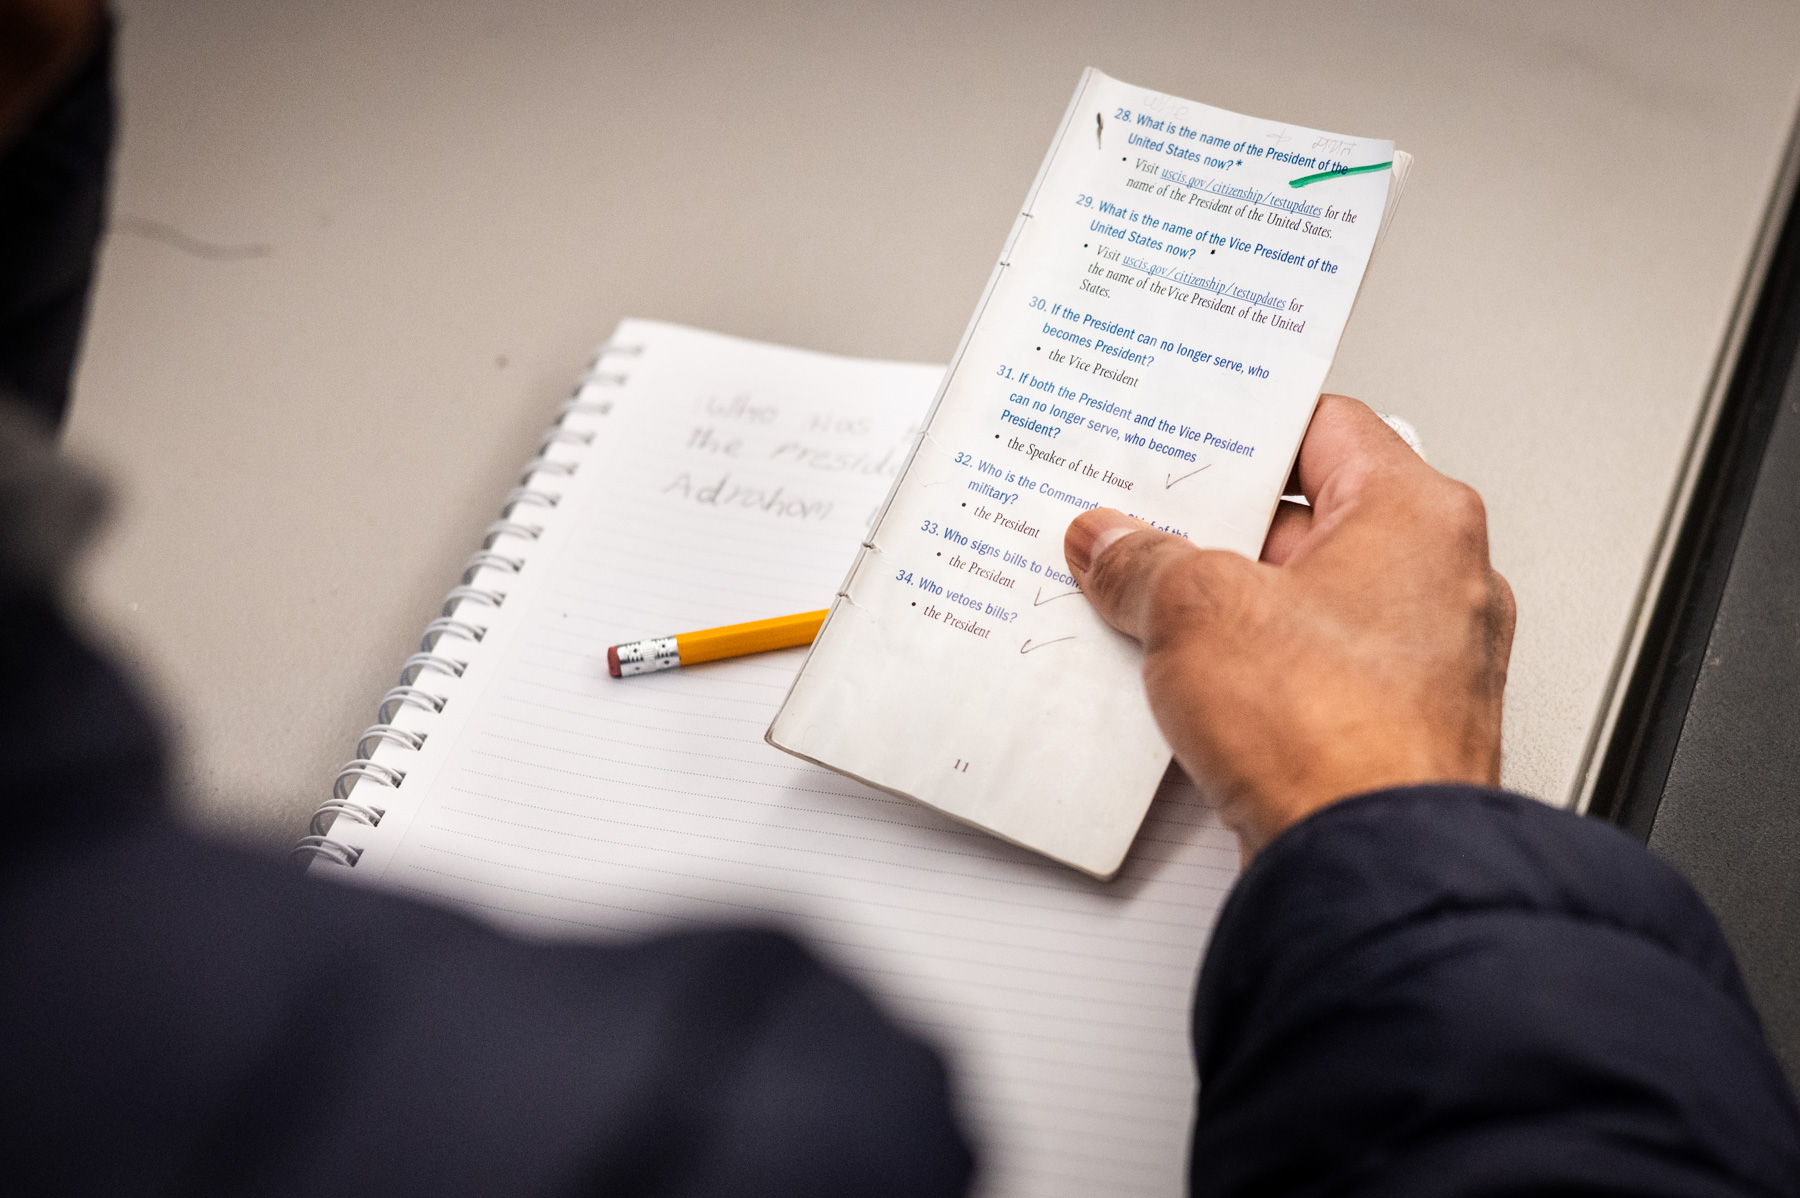 28. What is the name of the President of the
United States now?*
• Visit uscis.gov/citizenship/testupdates for the
name of the President of the United States.
29. What is the name of the Vice President of the
United States now?
• Visit uscis.gov/citizenship/testupdates for
the name of the Vice President of the United
States.
30. If the President can no longer serve, who
becomes President?
• the Vice President
31. If both the President and the Vice President
can no longer serve, who becomes
President?
• the Speaker of the House
32. Who is the of the
military?
• the President
33. Who signs bills to
• the President
34. Who vetoes bills?
• the President
11
Who was
the
Adraham